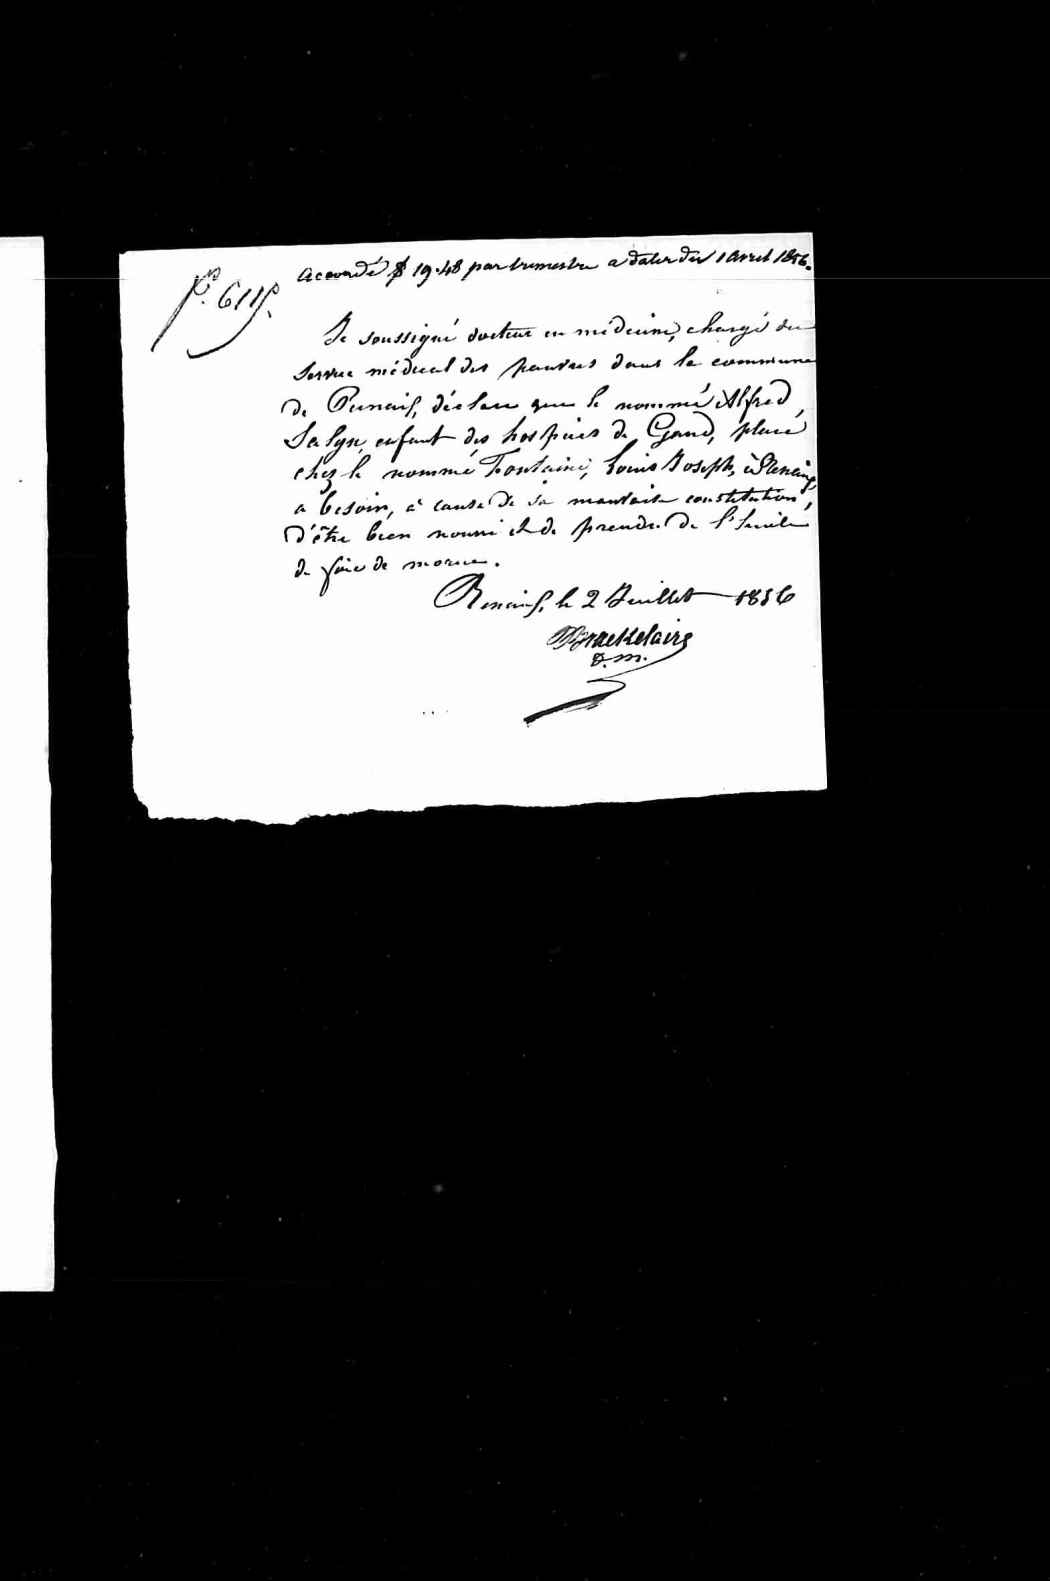 accordé f 19.48 par trimestre a dater du 1 avril 1856.
f°. 6115.
Je soussigné docteur en médecine, chargé du
service médical des pauvres dans la commune
de Renaix, déclare que le nommé Alfred
enfant des hospices de Gand, placé
chez le nommé Fontaine, Louis Joseph, à
a besoin, à cause de sa mauvaise constitution,
d'être bien nourri et de prendre de l'huile
de foie de morue.
Renaix, le 2 Juillet 1856
D.M.